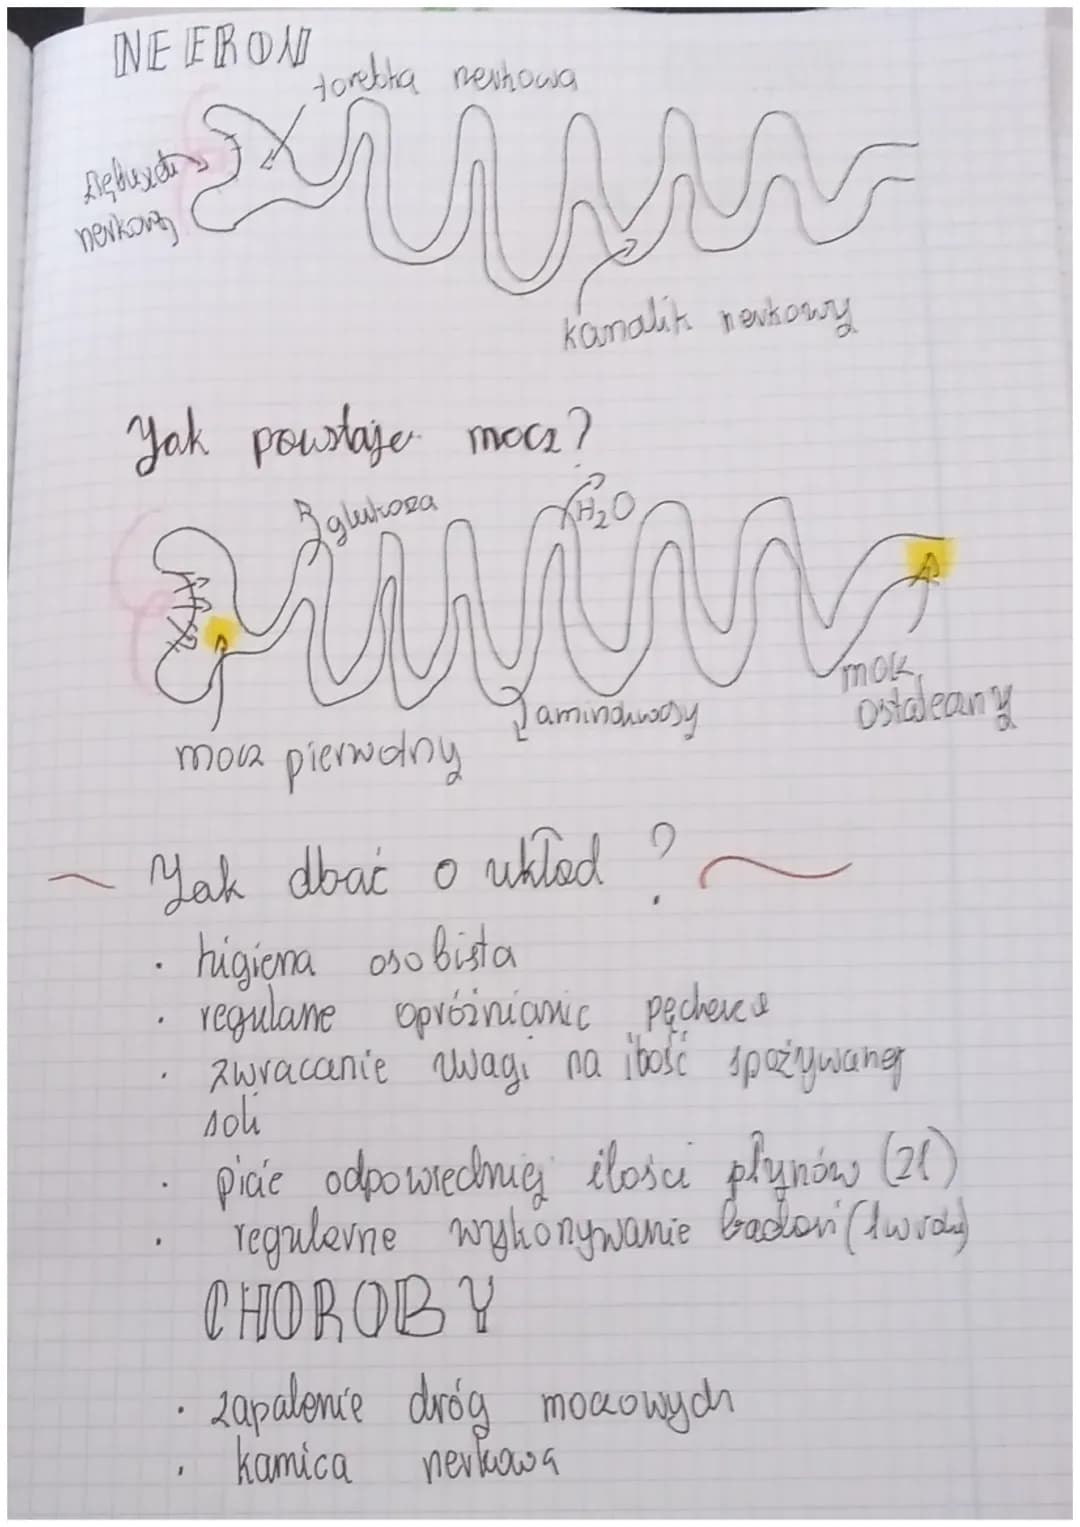 NEFRON
torebka nerkowa
kłębuszek
nerkowy
kanalik nerkowy
Jak powstaje mocz?
glukoza
H₂O
mocz
ostateczny
aminokwasy
mocz pierwotny
Jak dbać o układ ?
· higiena osobista
· regulane opróżnianie pęcherza
· zwracanie uwagi na ilość spożywanej
soli
· picie odpowiedniej ilości płynów (2l)
· regularne wykonywanie badań (1 w roku)
CHOROBY
· zapalenie dróg moczowych
· kamica nerkowa